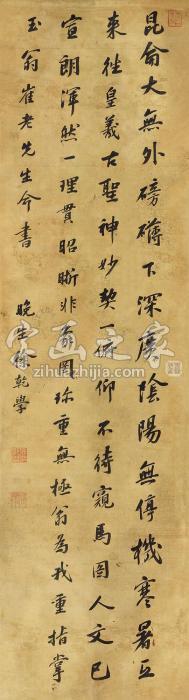 昆侖大無外磅礴下深廣陰陽無停機寒暑互
来徃皇羲古聖神妙契一俯仰不待窺馬圖人文已
宣朗渾然一理貫昭晰非象罔珍重無極翁為我重指掌
玉翁崔老先生命書
晚生徐乾學
字画之家
www.zihuazhijia.com